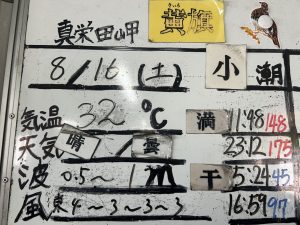 真栄田岬
きいろ
黄旗
8/16(土) 小潮
気温 32℃ 満 11:48 148
天気 晴/雲 23:12 175
波 0.5~1m 干 5:24 45
風 東4~3~3~3 16:59 97